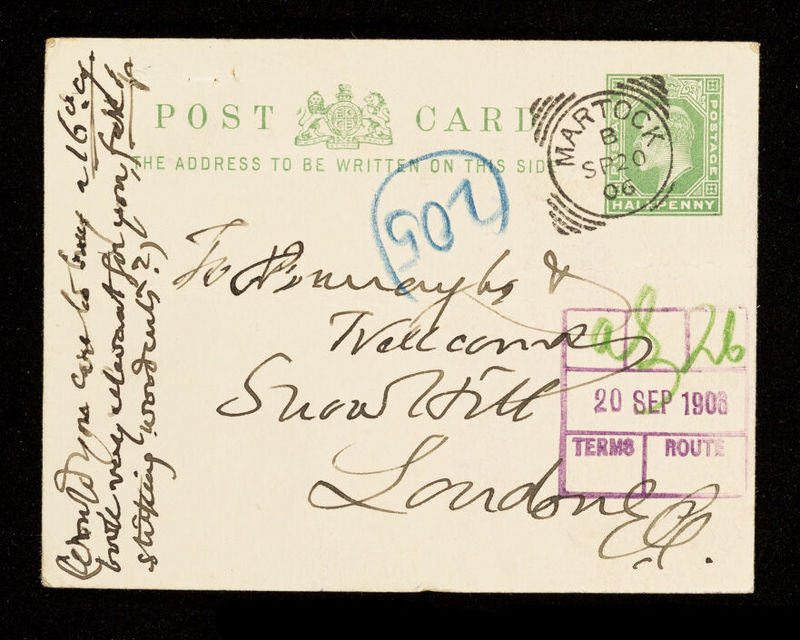 POST CARD
THE ADDRESS TO BE WRITTEN ON THIS SID
MARTOCK
B
SP 20
06
POSTAGE
HALFPENNY
205
To Burroughs &
Wellcome
Snow Hill
London E.C.
26
20 SEP 1906
TERMS ROUTE
(Would you care to buy a 16th cy.
book very relevant for you, full of
striking woodcuts?)